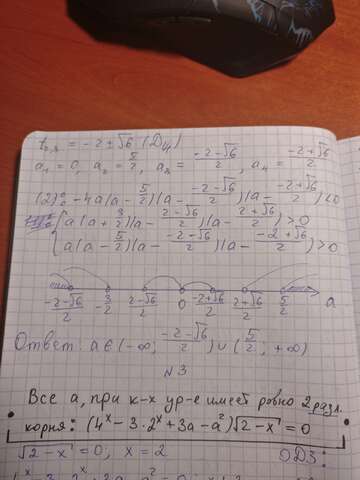 t₁,₂ = -2 ± √6 (Д/4)
a₁ = 0, a₂ = 5/2, a₃ = (-2-√6)/2, a₄ = (-2+√6)/2
(2): -4a(a - 5/2)(a - (-2-√6)/2)(a - (-2+√6)/2) < 0
{ a(a + 3/2)(a - (2-√6)/2)(a - (2+√6)/2) > 0
a(a - 5/2)(a - (-2-√6)/2)(a - (-2+√6)/2) > 0
(-2-√6)/2 -3/2 (2-√6)/2 0 (-2+√6)/2 (2+√6)/2 5/2 a
Ответ: a ∈ (-∞; (-2-√6)/2) ∪ (5/2; +∞)
№3
Все a, при к-х ур-е имеет ровно 2 разл.
корня: (4ˣ - 3·2ˣ + 3a - a²)√(2-x) = 0
√(2-x) = 0; x = 2 ОДЗ: